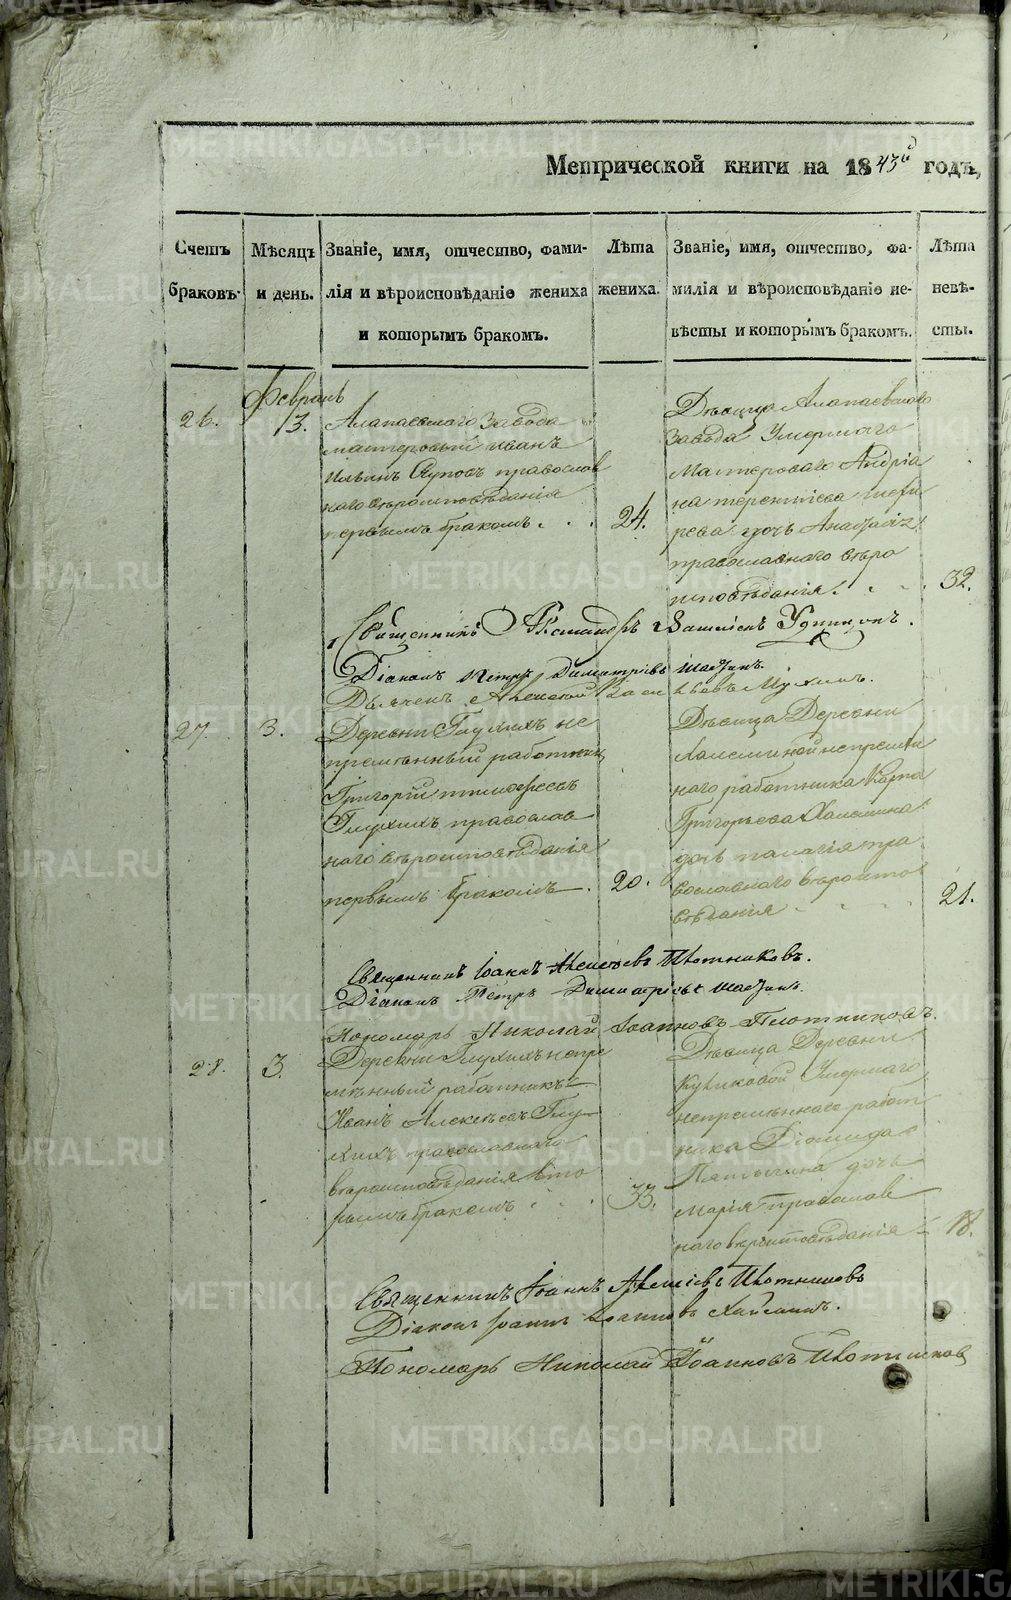 Метрической книги на 1843й годъ,
Счетъ браковъ.
Мѣсяцъ и день.
Званіе, имя, отчество, фами-
лія и вѣроисповѣданіе жениха
и которымъ бракомъ.
Лѣта
жениха.
Званіе, имя, отчество, фа-
милія и вѣроисповѣданіе не-
вѣсты и которымъ бракомъ.
Лѣта
невѣ-
сты.
Февраль
26.
3.
Алапаевскаго Завода
мастеровый Иванъ
Ильинъ православ
наго вѣроисповѣданія
первымъ бракомъ.
24.
Дѣвица Алапаевскаго
Завода Умершаго
Мастероваго Андріа
на Терентіева
рева дочь Анастасія
православнаго вѣро
исповѣданія.
32.
Священникъ Александръ
Діаконъ Петръ Димитріевъ
Дьячекъ Алексей Василь
27.
3.
Деревни Глухихъ не
премѣнный работникъ
Григорій Тимофеевъ
Глухихъ православ
наго вѣроисповѣданія
первымъ бракомъ.
20.
Дѣвица Деревни
непремѣн
наго работника Карпа
Григорьева
дочь Палагія пра
вославнаго вѣроиспо
вѣданія
21.
Священникъ Іоаннъ Алексѣевъ Плотниковъ.
Діаконъ Петръ Димитріевъ
Пономарь Николай Іоанновъ Плотниковъ.
28.
3.
Деревни Глухихъ непре
мѣнный работникъ
Иванъ Алексѣевъ Глу
хихъ православнаго
вѣроисповѣданія вто
рымъ бракомъ
33.
Дѣвица Деревни
Куликовой Умершаго
непремѣннаго работ
ника Діомида
дочь
Марія Православ
наго вѣроисповѣданія
18.
Священникъ Іоаннъ Алексѣевъ Плотниковъ
Діаконъ Іоаннъ Іоанновъ
Пономарь Николай Іоанновъ Плотниковъ
METRIKI.GASO-URAL.RU